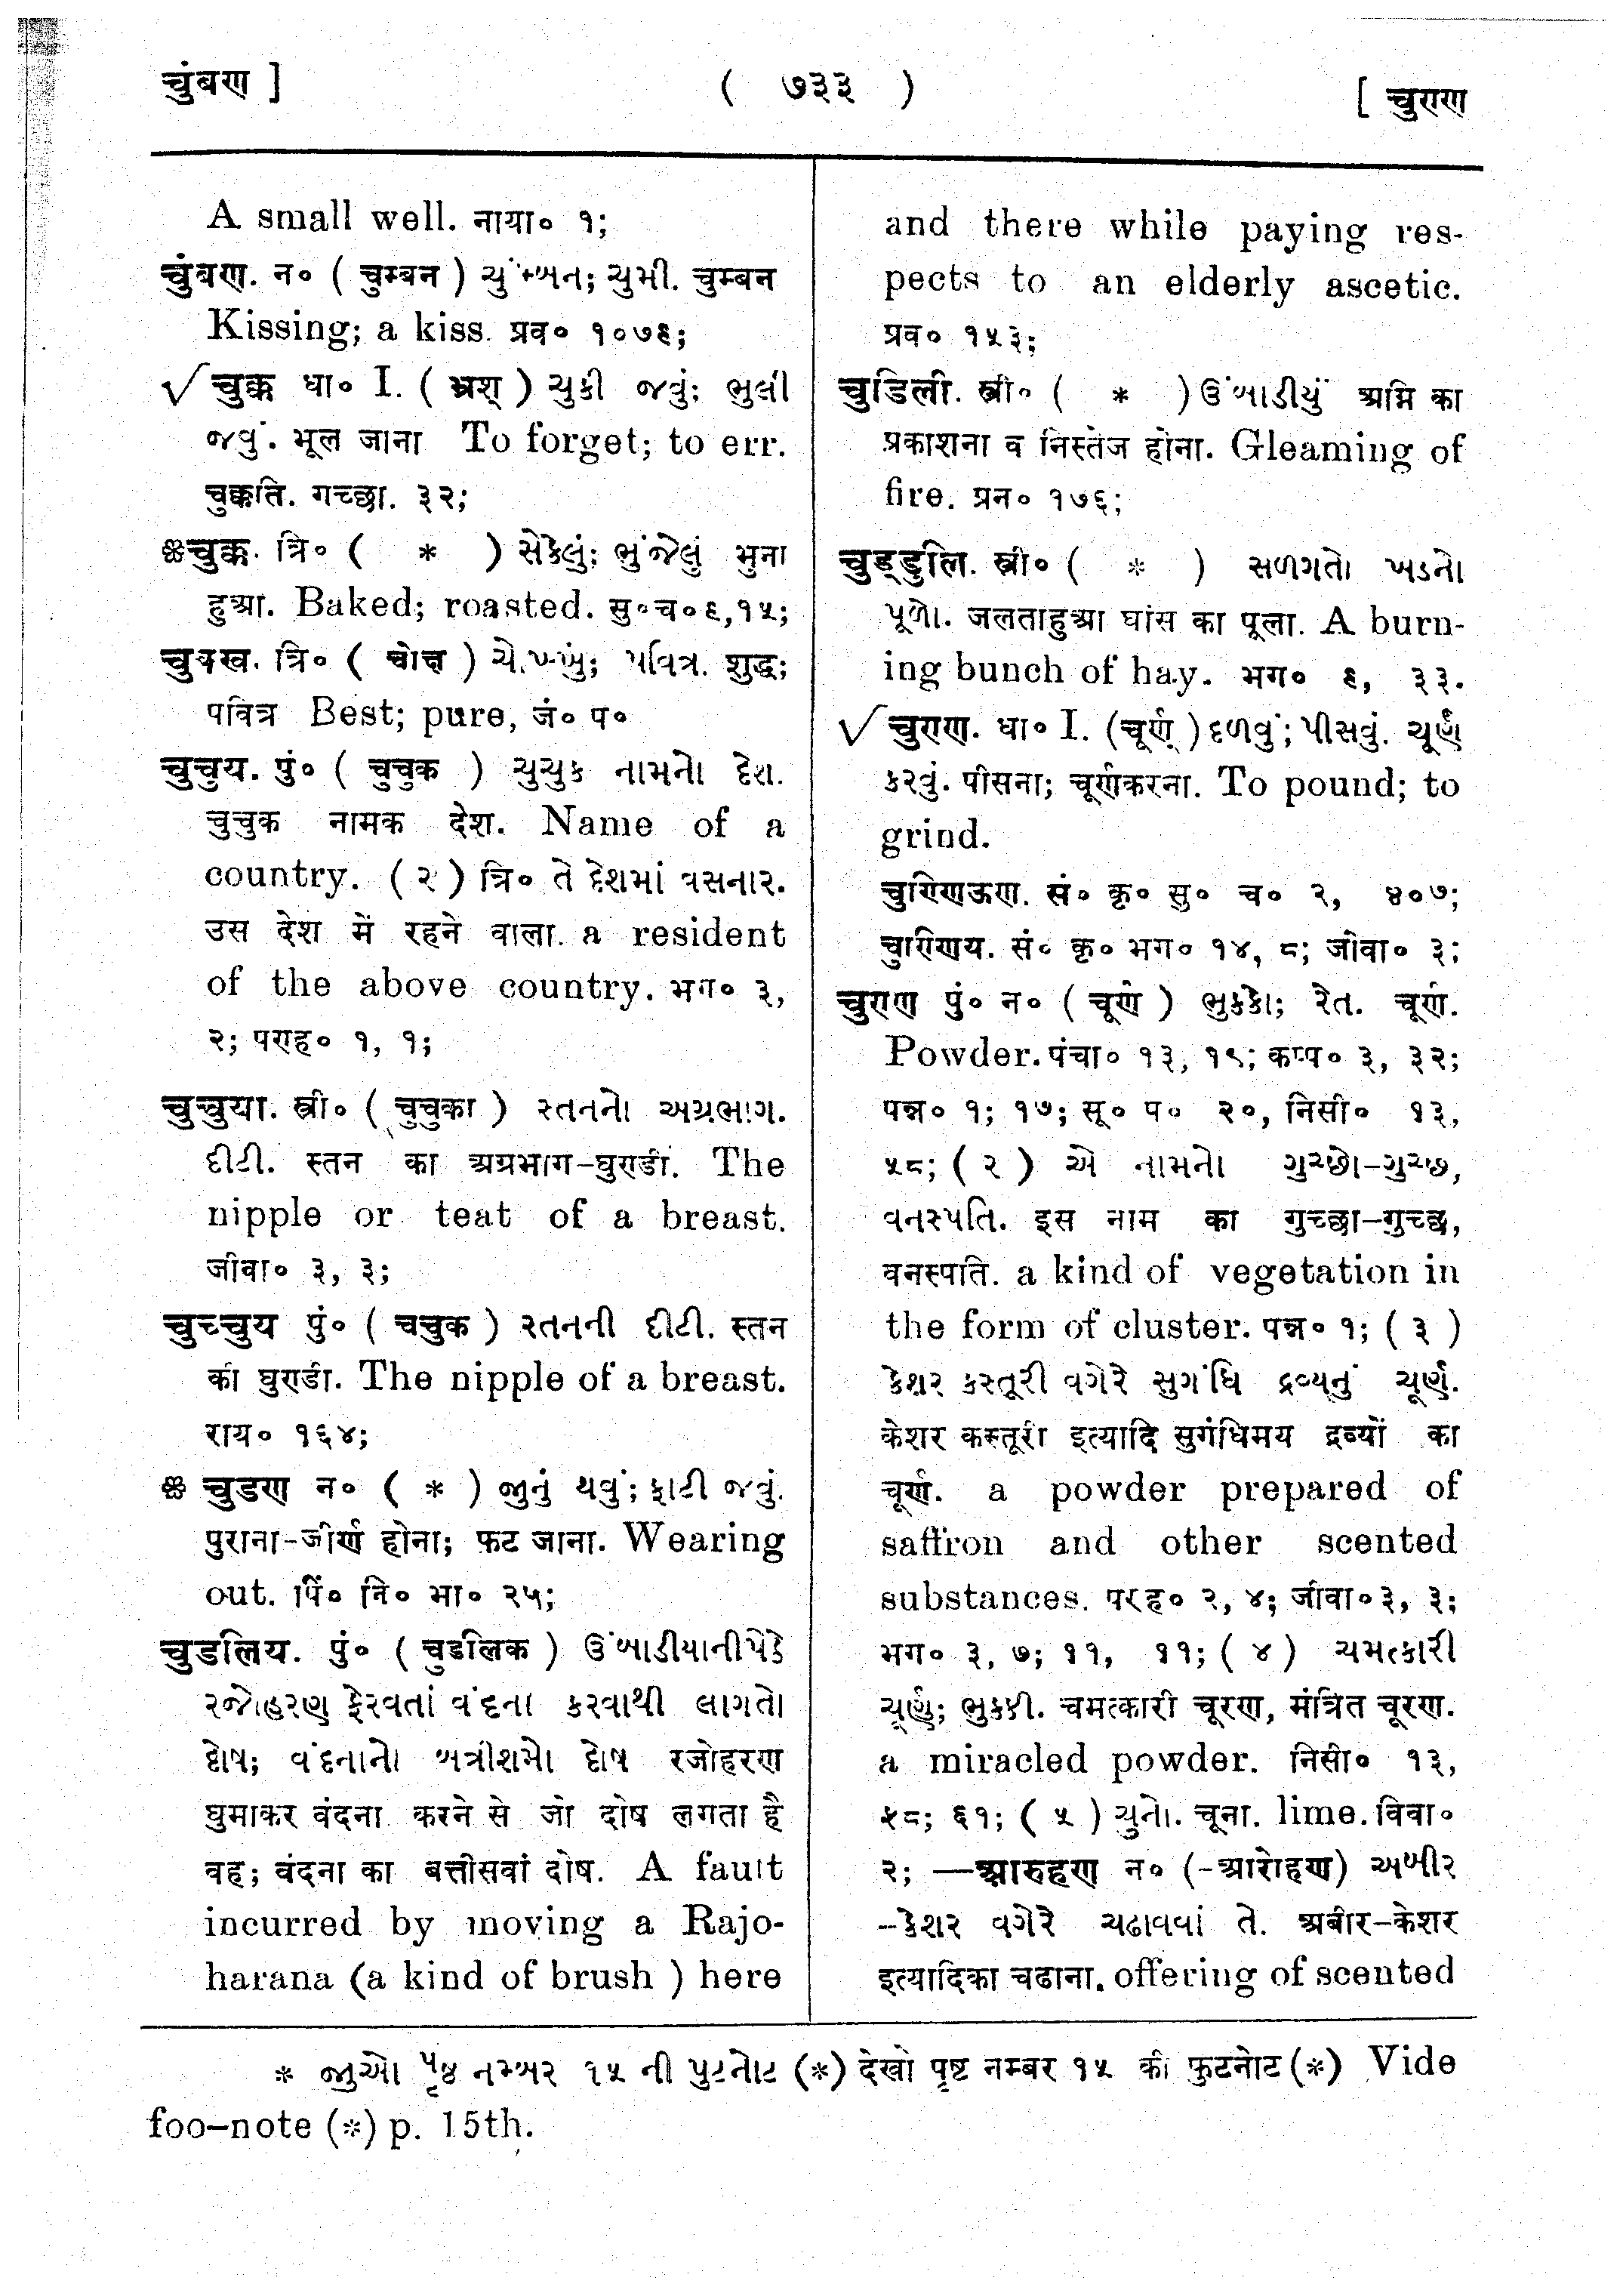 चुंबण ]
( ७३३ )
[ चुराण
A small well. नाया० १;
चुंबण. न० ( चुम्बन ) ચુંમ્બન; ચુમી. चुम्बन
Kissing; a kiss. प्रव० १०७६;
√ चुक्क धा० I. ( भ्रश् ) ચુકી જવું; ભુલી
જવું. भूल जाना To forget; to err.
चुक्कति. गच्छा. ३२;
❀चुक्क. त्रि० ( * ) સેકેલું; ભુંજેલું भुना
हुआ. Baked; roasted. सु०च०६,१५;
चुक्ख. त्रि० ( चोक्ष ) ચોખ્ખું; પવિત્ર. शुद्ध;
पवित्र Best; pure, जं० प०
चुचुय. पुं० ( चुचुक ) ચુચુક નામનો દેશ.
चुचुक नामक देश. Name of a
country. ( २ ) त्रि० તે દેશમાં વસનાર.
उस देश में रहने वाला. a resident
of the above country. भग० ३,
२; पराह० १, १;
चुचुया. स्त्री० ( चुचुका ) સ્તનનો અગ્રભાગ.
દીટી. स्तन का अग्रभाग-घुण्डी. The
nipple or teat of a breast.
जीवा० ३, ३;
चुच्चुय पुं० ( चचुक ) સ્તનની દીટી. स्तन
की घुण्डी. The nipple of a breast.
राय० १६४;
❀ चुडण न० ( * ) જુનું થવું; ફાટી જવું.
पुराना-जीर्ण होना; फट जाना. Wearing
out. पिं० नि० भा० २५;
चुडलिय. पुं० ( चुडलिक ) ઉંબાડીયાનીપેઠે
રજોહરણ ફેરવતાં વંદના કરવાથી લાગતો
દોષ; વંદનાનો બત્રીશમો દોષ रजोहरण
घुमाकर वंदना करने से जो दोष लगता है
वह; वंदना का बत्तीसवां दोष. A fault
incurred by moving a Rajo-
harana (a kind of brush ) here
and there while paying res-
pects to an elderly ascetic.
प्रव० १५३;
चुडिली. स्त्री० ( * ) ઉંબાડીયું अग्नि का
प्रकाशना व निस्तेज होना. Gleaming of
fire. प्रन० १७६;
चुड्डुलि. स्त्री० ( * ) સળગતો ખડનો
પૂળો. जलताहुआ घांस का पूला. A burn-
ing bunch of hay. भग० ६, ३३.
√ चुराण. धा० I. (चूर्ण् ) દળવું; પીસવું. ચૂર્ણ
કરવું. पीसना; चूर्णकरना. To pound; to
grind.
चुण्णिऊण. सं० कृ० सु० च० २, ४०७;
चुण्णिय. सं० कृ० भग० १४, ८; जीवा० ३;
चुराण पुं० न० ( चूर्ण ) ભુક્કો; રેત. चूर्ण.
Powder. पंचा० १३, १९; कप्प० ३, ३२;
पन्न० १; १७; सू० प० २०, निसी० १३,
५८; ( २ ) એ નામનો ગુચ્છો-ગુચ્છ,
વનસ્પતિ. इस नाम का गुच्छा-गुच्छ,
वनस्पति. a kind of vegetation in
the form of cluster. पन्न० १; ( ३ )
કેશર કસ્તૂરી વગેરે સુગંધિ દ્રવ્યનું ચૂર્ણ.
केशर कस्तूरी इत्यादि सुगंधिमय द्रव्यों का
चूर्ण. a powder prepared of
saffron and other scented
substances. पराह० २, ४; जीवा० ३, ३;
भग० ३, ७; ११, ११; ( ४ ) ચમત્કારી
ચૂર્ણ; ભુકકી. चमत्कारी चूरण, मंत्रित चूरण.
a miracled powder. निसी० १३,
५८; ६१; ( ५ ) ચુનો. चूना. lime. विवा०
२; —आरुहण न० (-आरोहण) અબીર
-કેશર વગેરે ચઢાવવાં તે. अबीर-केशर
इत्यादिका चढाना. offering of scented
* જુઓ પૃષ્ઠ નમ્બર ૧૫ ની ફુટનોટ (*) देखो पृष्ट नम्बर १५ की फुटनोट (*) Vide
foo-note (*) p. 15th.